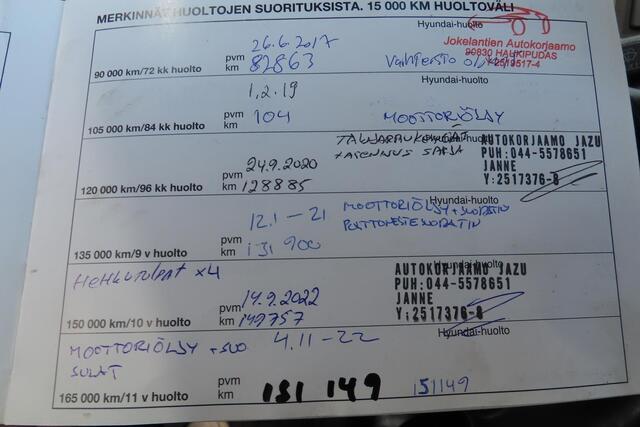 MERKINNÄT HUOLTOJEN SUORITUKSISTA. 15 000 KM HUOLTOVÄLI
Hyundai-huolto
26.6.2017
pvm
km 82863
90 000 km/72 kk huolto
Jokelantien Autokorjaamo
90830 HAUKIPUDAS
Hyundai-huolto
1.2.19
pvm
km 104
MOOTTORIÖLJY
105 000 km/84 kk huolto
Hyundai-huolto
AUTOKORJAAMO JAZU
PUH:044-5578651
JANNE
Y:2517376-8
pvm 24.9.2020
km 128885
120 000 km/96 kk huolto
Hyundai-huolto
12.1-21
pvm
km 131 900
MOOTTORIÖLJY + SUODATIN
POLTTOAINESUODATIN
135 000 km/9 v huolto
Hyundai-huolto
HEHKUTULPAT x4
AUTOKORJAAMO JAZU
PUH:044-5578651
JANNE
Y:2517376-8
pvm 14.9.2022
km 149757
150 000 km/10 v huolto
Hyundai-huolto
MOOTTORIÖLJY + SUO
4.11-22
pvm
km 151 149 151149
165 000 km/11 v huolto